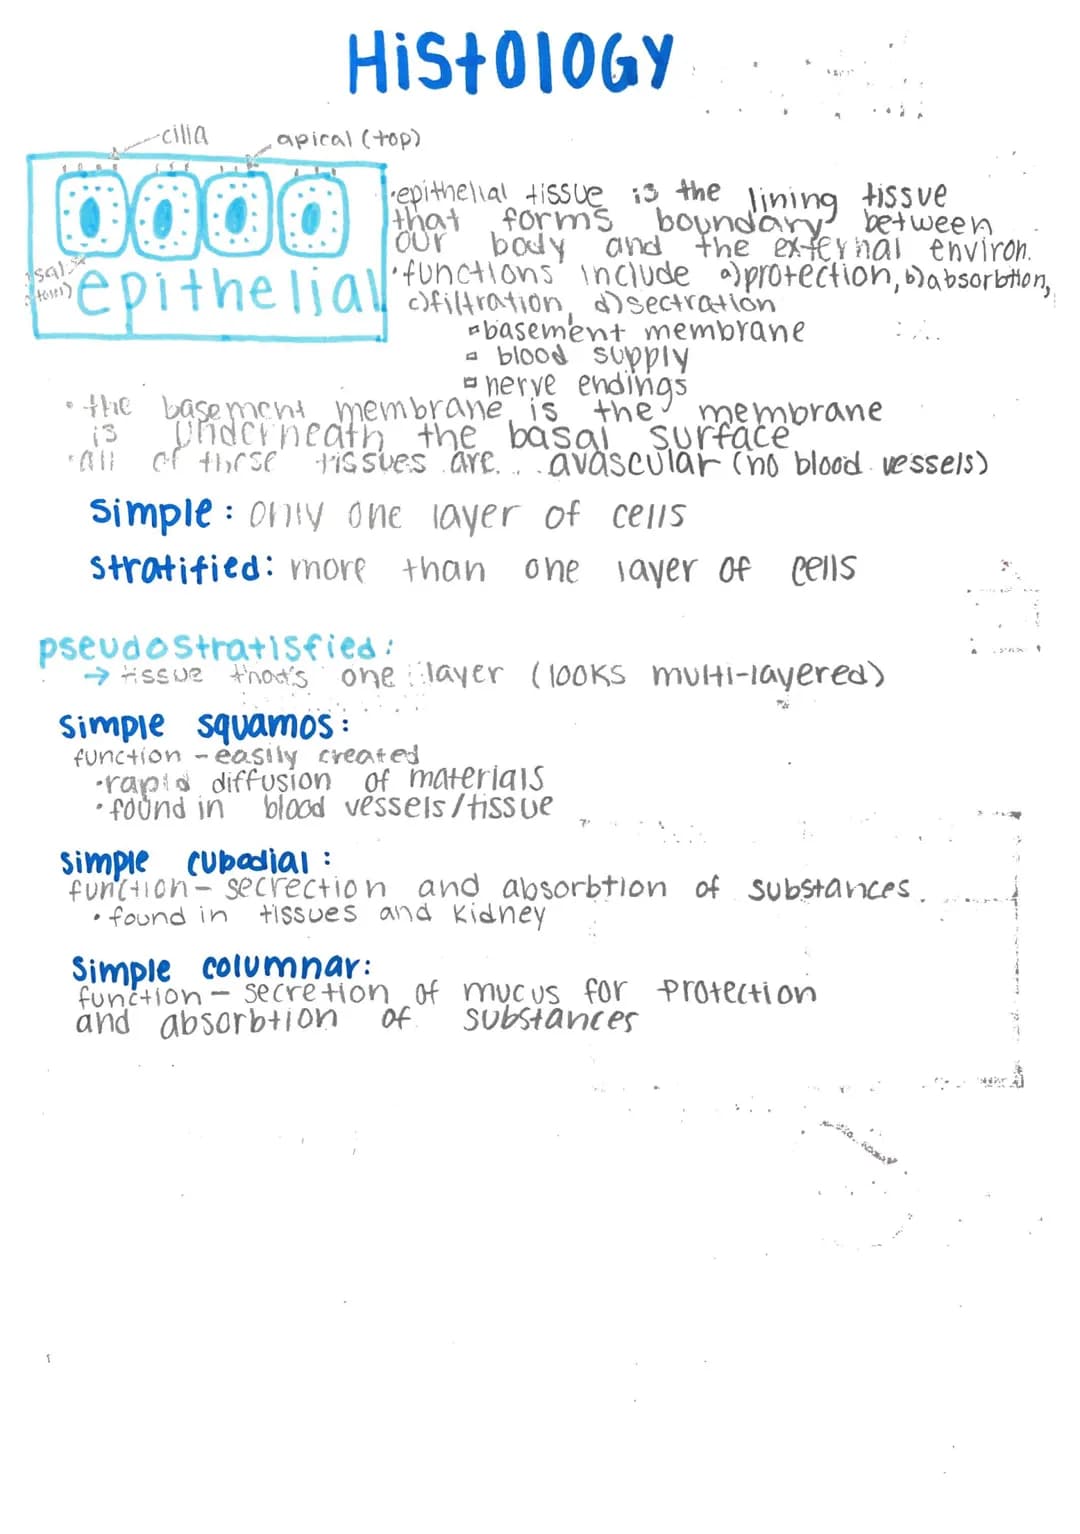 HiStOlOGY
cilia
apical (top)
epithelial
•epithelial tissue is the lining tissue
that forms boundary between
our body and the external environ.
•functions include a)protection, b)absorbtion,
c)filtration, d)sectration
▫basement membrane
▫ blood supply
▫ nerve endings
• the basement membrane is the membrane
is underneath the basal surface
•all of these tissues are... avascular (no blood vessels)
simple: only one layer of cells
stratified: more than one layer of cells
pseudostratisfied:
→ tissue that's one layer (looks multi-layered)
simple squamos:
function - easily created
•rapid diffusion of materials
•found in blood vessels/tissue
simple cubodial:
function- secrection and absorbtion of substances.
•found in tissues and kidney
Simple columnar:
function - secretion of mucus for protection
and absorbtion of substances